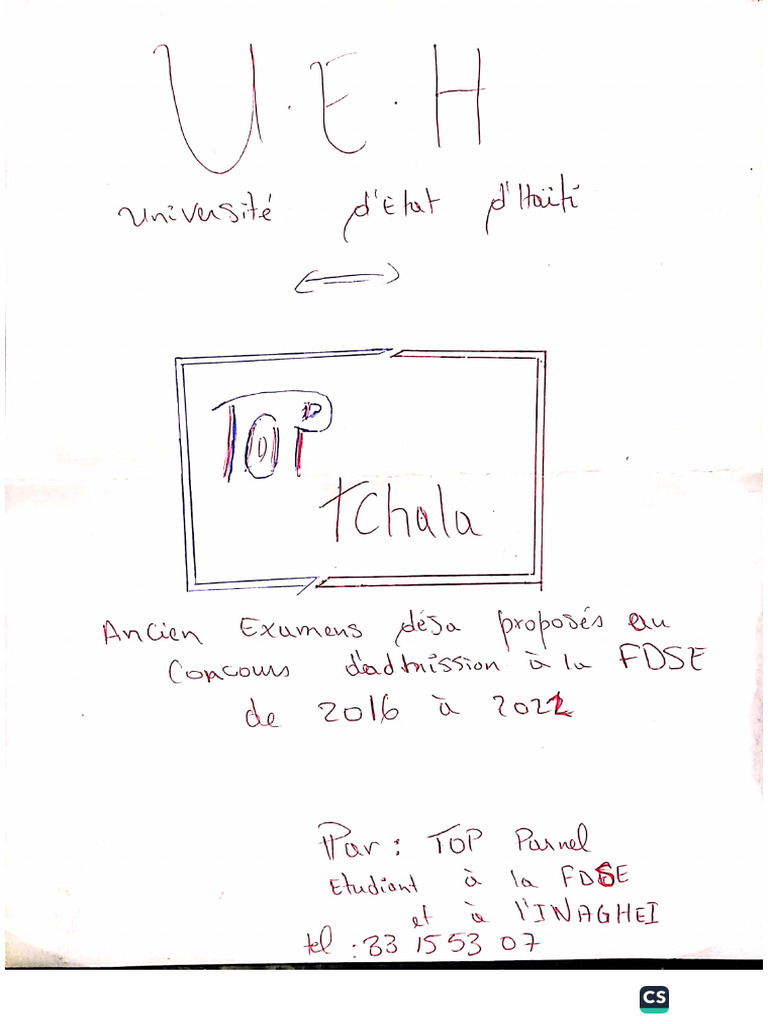 U.E.H
Université d'Etat d'Haïti
TOP
tchala
Ancien Examens déja proposés au
Concours d'admission à la FDSE
de 2016 à 2022
Par : TOP Parnel
Etudiant à la FDSE
et à l'INAGHEI
tel : 33 15 53 07
CS